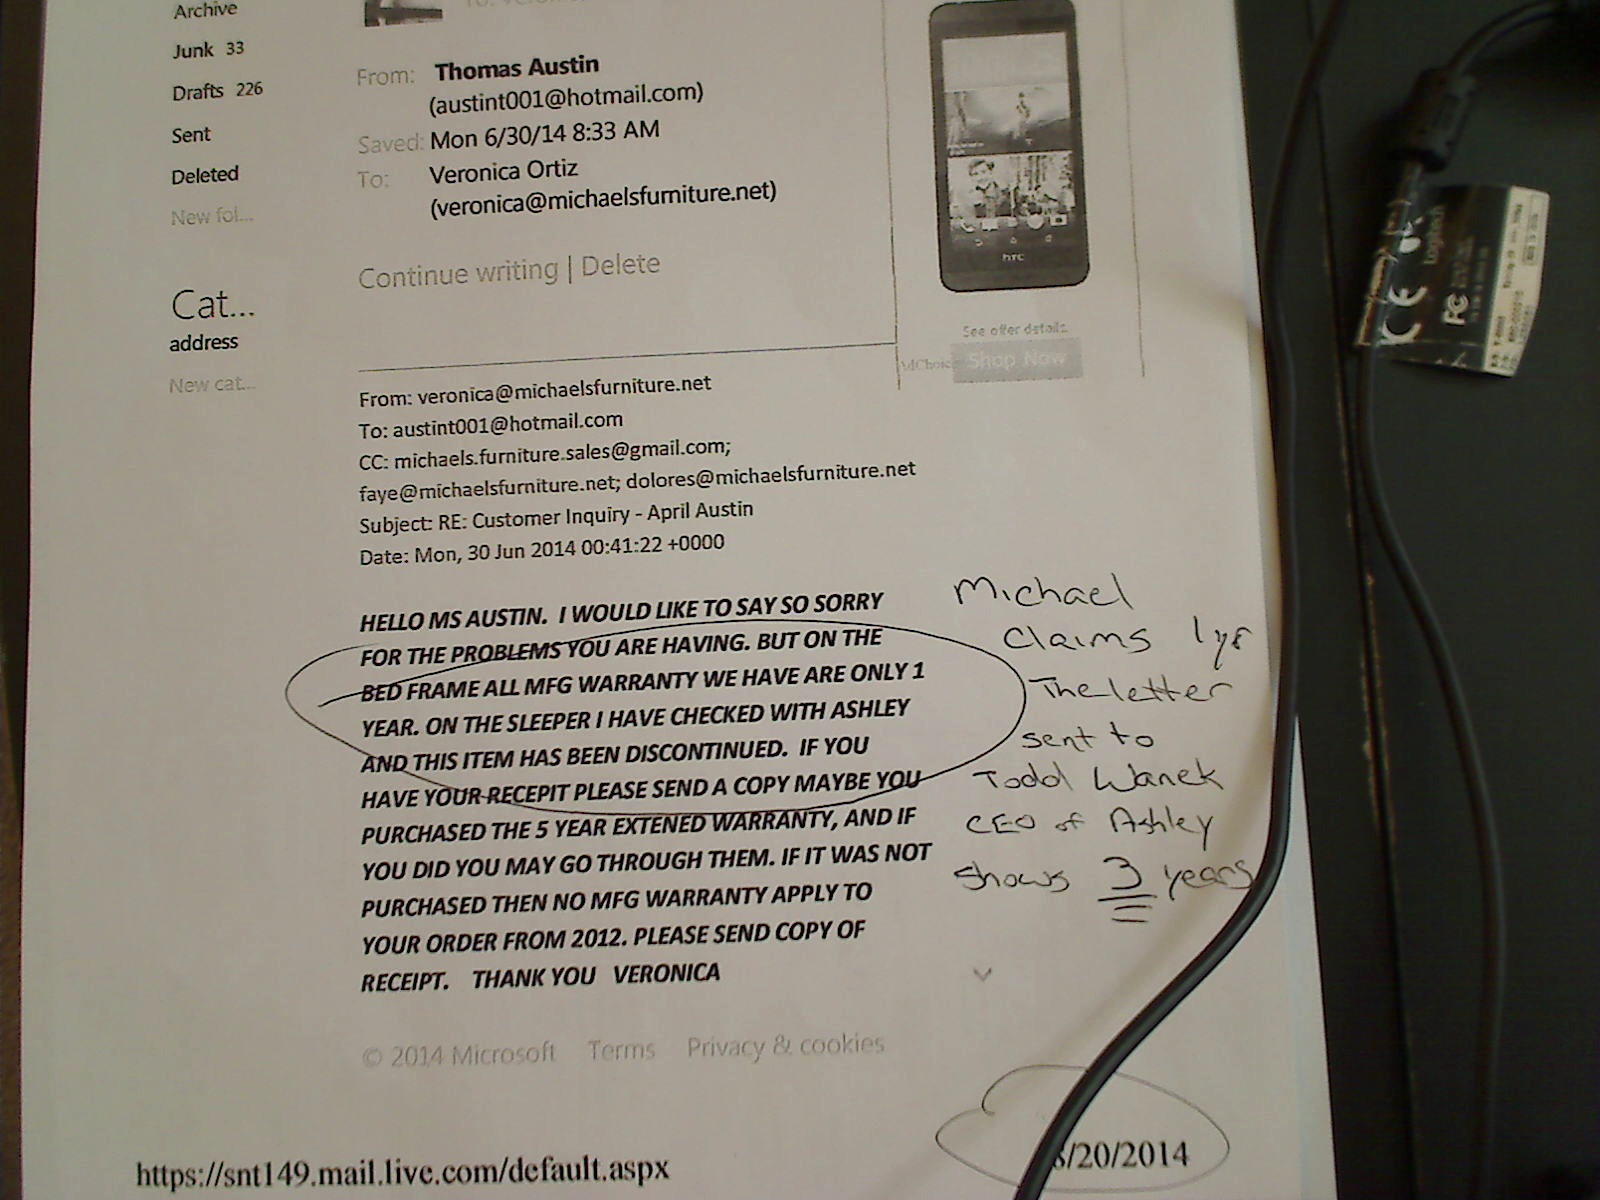 Archive
Junk 33
Drafts 226
Sent
Deleted
New fol...
Cat...
address
New cat...
From: Thomas Austin
(austint001@hotmail.com)
Saved: Mon 6/30/14 8:33 AM
To: Veronica Ortiz
(veronica@michaelsfurniture.net)
Continue writing | Delete
hTC
See offer details
Shop Now
From: veronica@michaelsfurniture.net
To: austint001@hotmail.com
CC: michaels.furniture.sales@gmail.com;
faye@michaelsfurniture.net; dolores@michaelsfurniture.net
Subject: RE: Customer Inquiry - April Austin
Date: Mon, 30 Jun 2014 00:41:22 +0000
HELLO MS AUSTIN. I WOULD LIKE TO SAY SO SORRY
FOR THE PROBLEMS YOU ARE HAVING. BUT ON THE
BED FRAME ALL MFG WARRANTY WE HAVE ARE ONLY 1
YEAR. ON THE SLEEPER I HAVE CHECKED WITH ASHLEY
AND THIS ITEM HAS BEEN DISCONTINUED. IF YOU
HAVE YOUR RECEPIT PLEASE SEND A COPY MAYBE YOU
PURCHASED THE 5 YEAR EXTENED WARRANTY, AND IF
YOU DID YOU MAY GO THROUGH THEM. IF IT WAS NOT
PURCHASED THEN NO MFG WARRANTY APPLY TO
YOUR ORDER FROM 2012. PLEASE SEND COPY OF
RECEIPT. THANK YOU VERONICA
Michael
Claims 1yr
The letter
sent to
Todd Wanek
CEO of Ashley
Shows 3 years
© 2014 Microsoft Terms Privacy & cookies
https://snt149.mail.live.com/default.aspx
/20/2014
Logitech
CE
FC